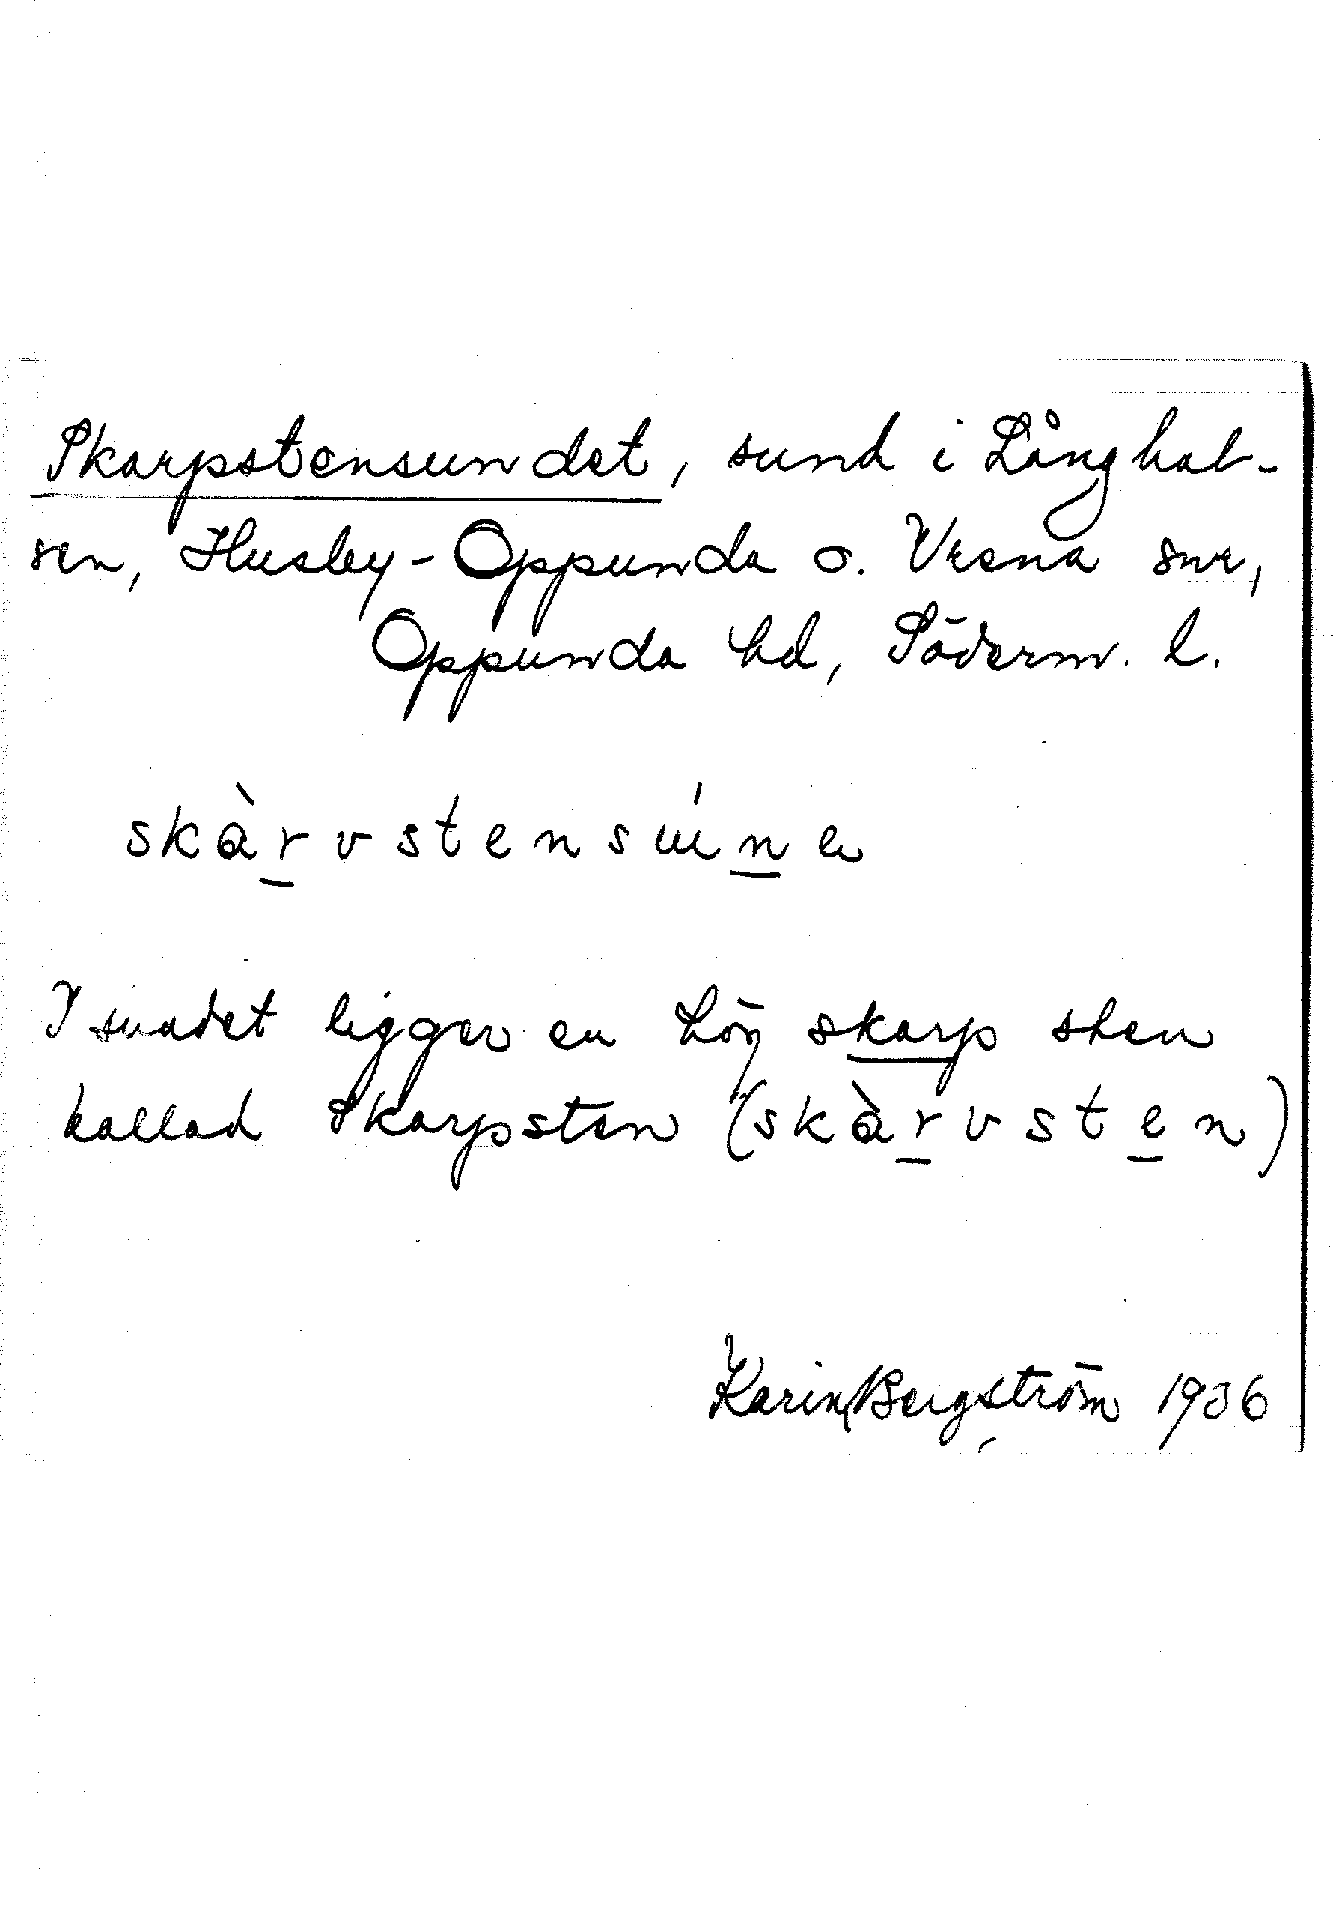 Skarpstensundet, sund i Långhal-
sen, Husby-Oppunda o. Vrena snr,
Oppunda hd, Söderm. l.
skàrvstensúne
I sundet ligger en hög skarp sten
kallad Skarpsten (skàrvsten)
Karin Bergström 1936